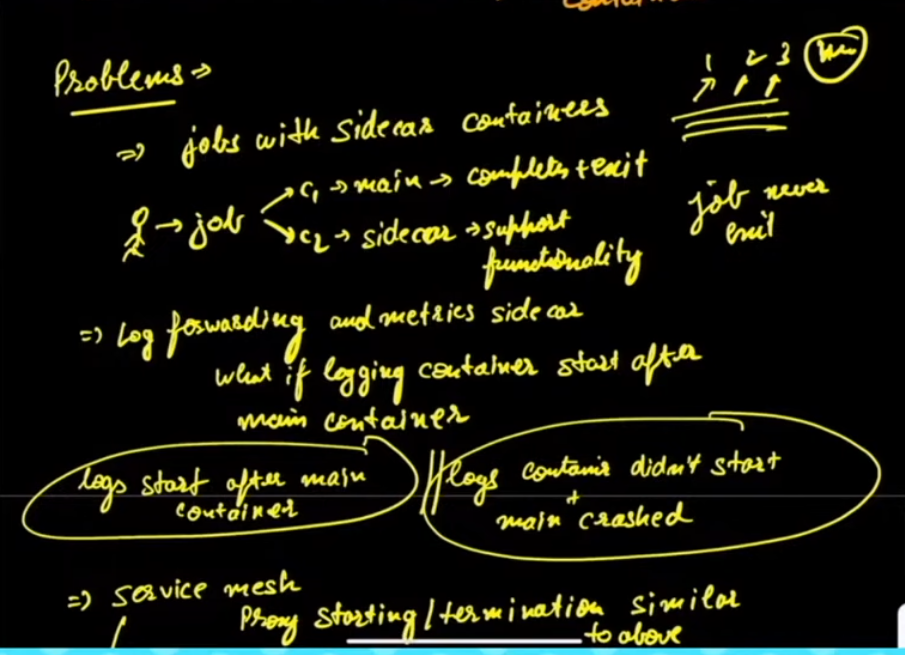 Problems ⇒
1 2 3
⇒ jobs with sidecar containers
→ job → c1 → main → completes + exit
→ c2 → sidecar → support
functionality
job never
exit
⇒ Log forwarding and metrics sidecar
what if logging container start after
main container
logs start after main
container
logs contanir didn't start
+
main crashed
⇒ service mesh
Proxy starting / termination similar
to above